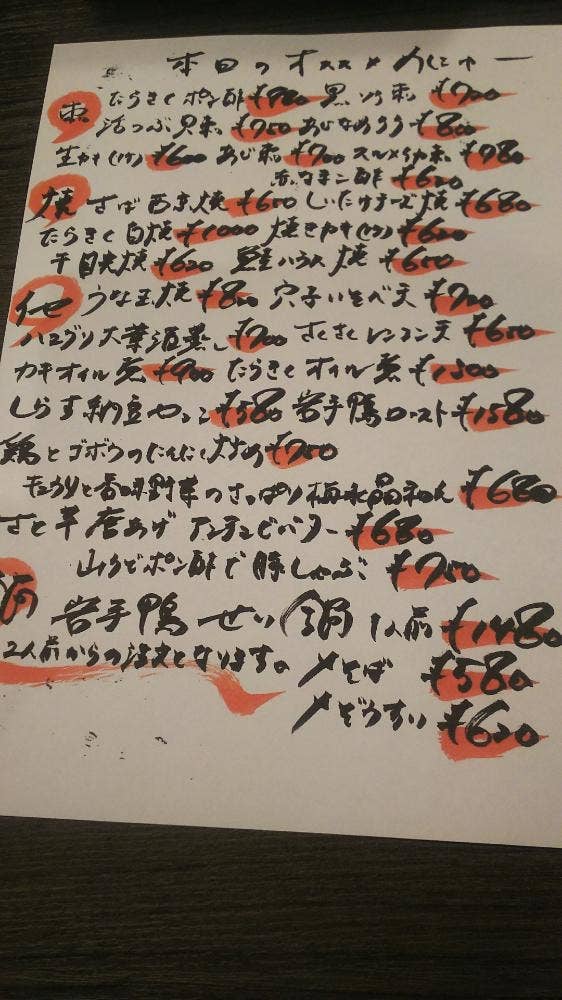 本日のオススメめにゅー
刺 たらきくポン酢 ¥780 黒ソイ刺 ¥700
活つぶ貝刺 ¥750 あじなめろう ¥800
生かき(2ケ) ¥600 あじ刺 ¥700 スルメイカ刺 ¥780
赤なまこ酢 ¥620
焼 さば西京焼 ¥650 しいたけチーズ焼 ¥680
たらきく白焼 ¥1000 焼きかき(2ケ) ¥600
干目光焼 ¥620 鮭ハラス焼 ¥650
他 うな玉焼 ¥800 穴子いそべ天 ¥700
ハマグリ大葉酒蒸し ¥700 さくさくレンコン天 ¥650
カキオイル煮 ¥900 たらきくオイル煮 ¥1300
しらす納豆やっこ ¥580 岩手鴨ロースト ¥1580
鶏とゴボウのにんにく炒め ¥750
たたきうりと香味野菜のさっぱり梅水晶和え ¥680
さと芋唐あげ アンチョビバター ¥680
山うどポン酢で豚しゃぶ ¥750
鍋 岩手鴨せり鍋 1人前 ¥1480
2人前からの注文となります。 〆そば ¥580
〆ぞうすい ¥620